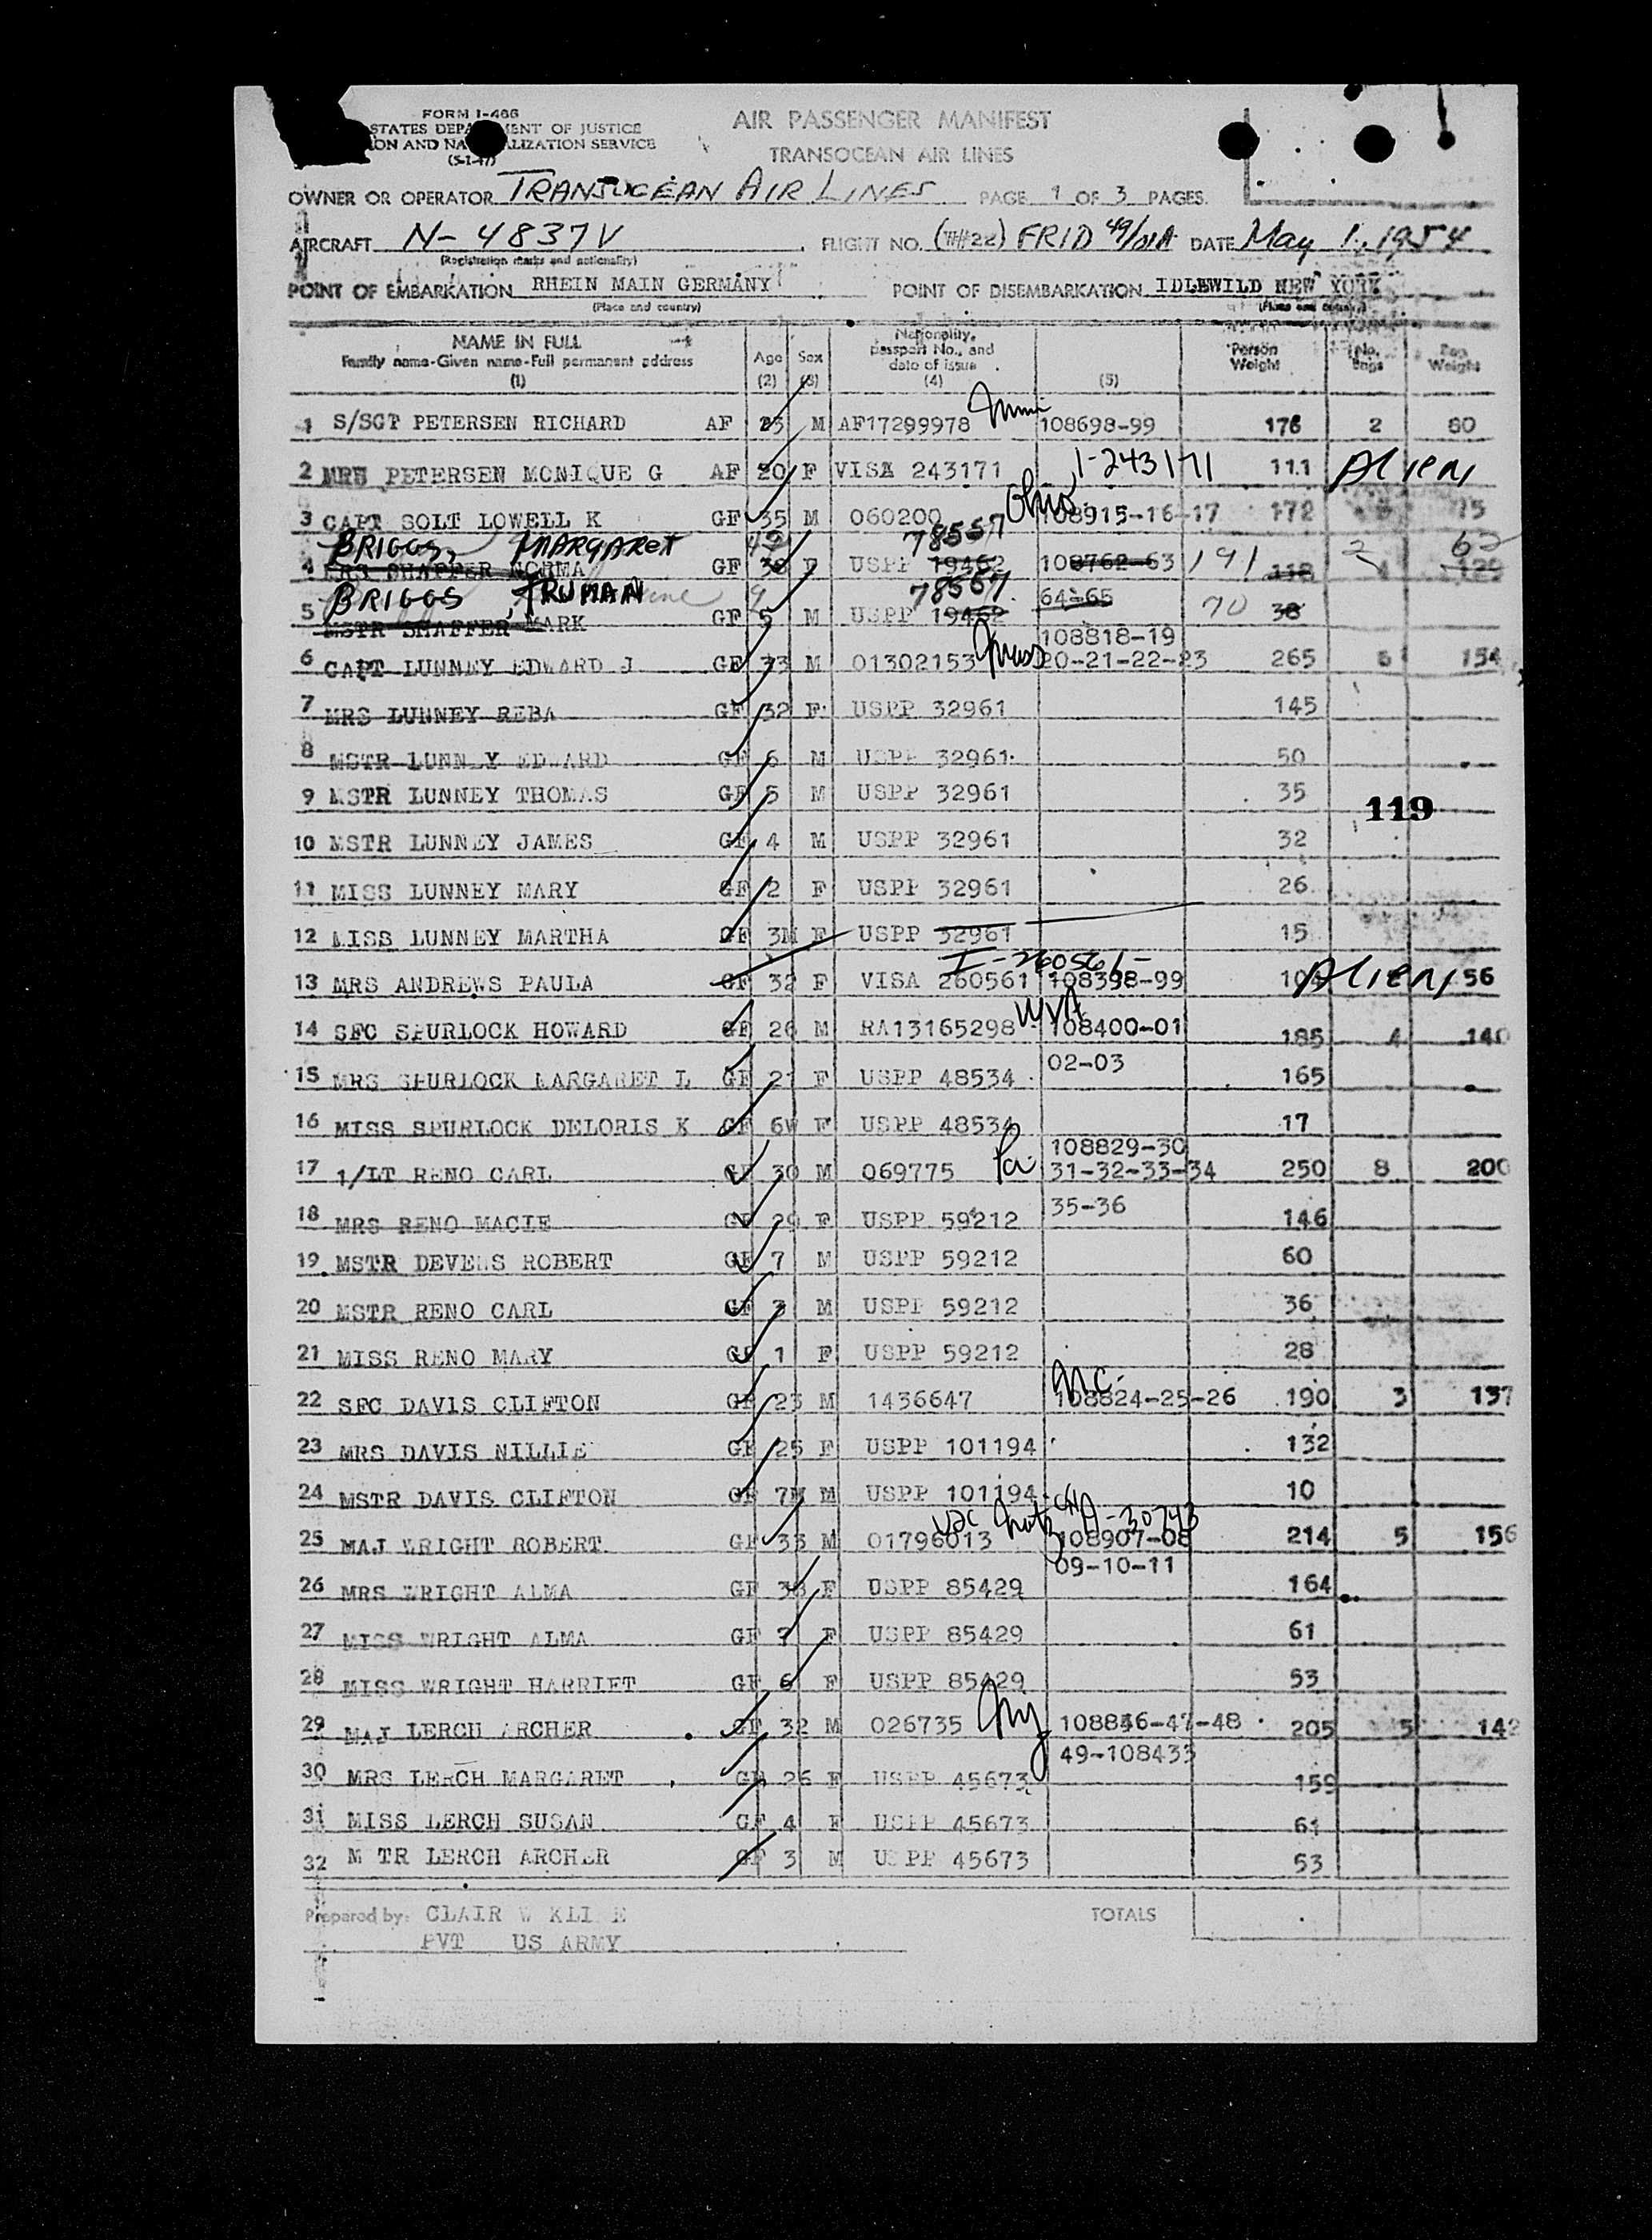 FORM I-466
STATES DEPA MENT OF JUSTICE
ION AND NA ALIZATION SERVICE
(5-1-47)
AIR PASSENGER MANIFEST
TRANSOCEAN AIR LINES
OWNER OR OPERATOR TRANSOCEAN AIR LINES PAGE 1 OF 3 PAGES.
AIRCRAFT N-4837V FLIGHT NO. FRID 49/01A DATE May 1, 1954
(Registration marks and nationality)
POINT OF EMBARKATION RHEIN MAIN GERMANY POINT OF DISEMBARKATION IDLEWILD NEW YORK
(Place and country) (Place and country)
NAME IN FULL
Family name-Given name-Full permanent address
(1)
Age
(2)
Sex
(3)
Nationality,
passport No., and
date of issue
(4)
(5)
Person
Weight
No.
Bags
Bag
Weight
1 S/SGT PETERSEN RICHARD AF 23 M AF17299978 108698-99 176 2 80
2 MRS PETERSEN MONIQUE G AF 20 F VISA 243171 1-243171 111 Alien
3 CAPT SOLT LOWELL K GF 35 M 060200 Ohio 108915-16-17 172 75
BRIGGS, MARGARET 78557
4 MRS SHAFFER NORMA GF 38 F USPP 19462 108762-63 191 118 2 4 62 129
BRIGGS, TRUMAN 9 78557 64-65
5 MSTR SHAFFER MARK GF 5 M USPP 19462 70 38
108818-19
6 CAPT LUNNEY EDWARD J GF 33 M 01302153 Mass 20-21-22-23 265 6 154
7 MRS LUNNEY REBA GF 32 F USPP 32961 145
8 MSTR LUNNEY EDWARD GF 6 M USPP 32961 50
9 MSTR LUNNEY THOMAS GF 5 M USPP 32961 35
119
10 MSTR LUNNEY JAMES GF 4 M USPP 32961 32
11 MISS LUNNEY MARY GF 2 F USPP 32961 26
12 MISS LUNNEY MARTHA GF 3M F USPP 32961 15
I-260561-
13 MRS ANDREWS PAULA GF 32 F VISA 260561 108398-99 Alien 56
14 SFC SPURLOCK HOWARD GF 26 M RA13165298 WVA 108400-01 185 4 140
02-03
15 MRS SPURLOCK MARGARET L GF 21 F USPP 48534 165
16 MISS SPURLOCK DELORIS K GF 6W F USPP 48534 17
108829-30
17 1/LT RENO CARL GF 30 M 069775 Pa 31-32-33-34 250 8 200
35-36
18 MRS RENO MACIE GF 29 F USPP 59212 146
19 MSTR DEVENS ROBERT GF 7 M USPP 59212 60
20 MSTR RENO CARL GF 3 M USPP 59212 36
21 MISS RENO MARY GF 1 F USPP 59212 28
22 SFC DAVIS CLIFTON GF 23 M 1436647 N.C. 108824-25-26 190 3 137
23 MRS DAVIS NILLIE GF 25 F USPP 101194 132
24 MSTR DAVIS CLIFTON GF 7M M USPP 101194 10
25 MAJ WRIGHT ROBERT GF 33 M 01796013 108907-08 214 5 156
09-10-11
26 MRS WRIGHT ALMA GF 38 F USPP 85429 164
27 MISS WRIGHT ALMA GF 7 F USPP 85429 61
28 MISS WRIGHT HARRIET GF 6 F USPP 85429 53
29 MAJ LERCH ARCHER GF 32 M 026735 NY 108846-47-48 205 5 142
49-108433
30 MRS LERCH MARGARET GF 26 F USPP 45673 159
31 MISS LERCH SUSAN GF 4 F USPP 45673 61
32 M TR LERCH ARCHER GF 3 M U PP 45673 53
Prepared by: CLAIR W KLI E TOTALS
PVT US ARMY